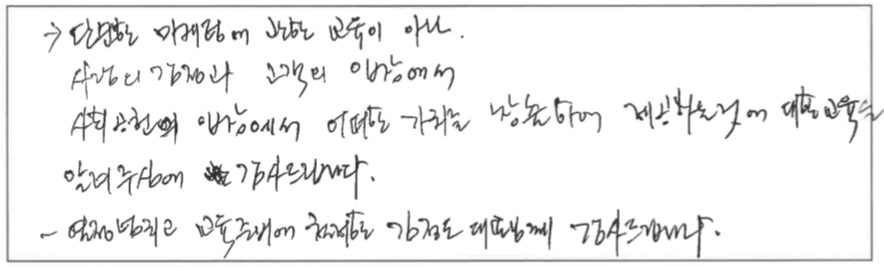 → 단순한 마케팅에 관한 교육이 아닌.
사람의 감정과 고객의 입장에서
사회공헌의 입장에서 어떠한 가치를 창출하여 제공하는것에 대한 교육을
알려주심에 감사드립니다.
- 열정넘치고 교육주제에 김정도 대표님께 감사드립니다.